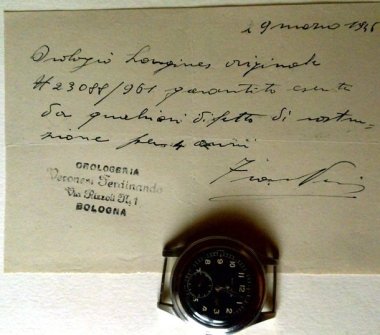 29 marzo 1946
Orologio Longines originale
# 23088/961 garantito esente
da qualsiasi difetto di costru-
zione per 4 anni
OROLOGERIA
Veronesi Ferdinando
Via Rizzoli N. 1
BOLOGNA